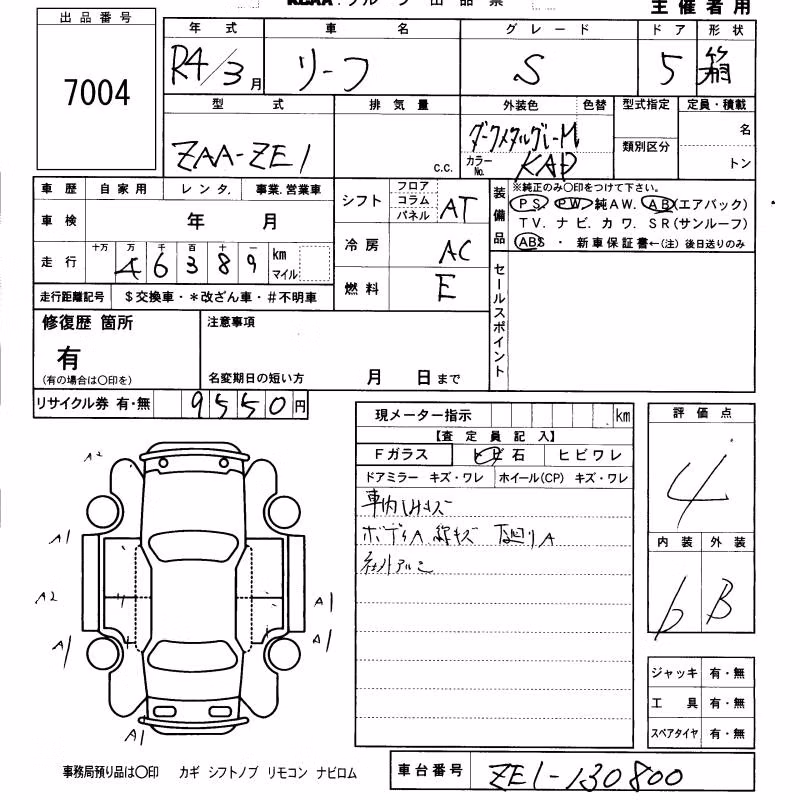 KCAA グループ 出品票
主催者用
出品番号
7004
年式 車名 グレード ドア 形状
R4/3月 リーフ S 5 箱
型式 排気量 外装色 色替 型式指定 定員・積載
ZAA-ZE1 c.c. ダークメタルグレーM 名
類別区分
カラーNo. KAD トン
車歴 自家用 レンタ. 事業.営業車
シフト フロア コラム パネル AT
装備品
※純正のみ〇印をつけて下さい。
PS PW 純AW. AB(エアバック)
TV. ナビ. カワ. SR(サンルーフ)
ABS ・ 新車保証書←(注) 後日送りのみ
車検 年 月
冷房 AC
走行 十万 万 千 百 十 一 km マイル
46389
燃料 E
セールスポイント
走行距離記号 $交換車・*改ざん車・#不明車
修復歴 箇所 注意事項
有
(有の場合は〇印を) 名変期日の短い方 月 日まで
リサイクル券 有・無 9550円
現メーター指示 km
【査定員記入】
Fガラス トビ石 ヒビワレ
ドアミラー キズ・ワレ ホイール(CP) キズ・ワレ
車内しみキズ
ボディA 線キズ 下廻りA
社外アルミ
評価点
4
内装 外装
b B
A2
A1
A2 A1
A1 A1
A1
ジャッキ 有・無
工具 有・無
スペアタイヤ 有・無
事務局預り品は〇印 カギ シフトノブ リモコン ナビロム
車台番号 ZE1-130800